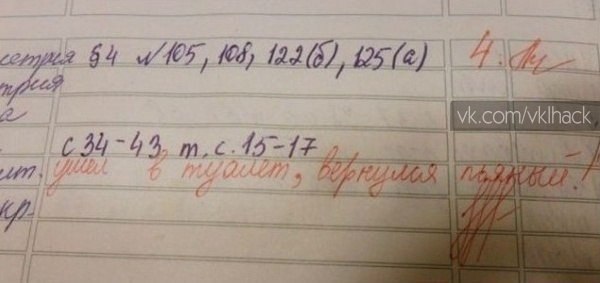 етрия §4 №105, 108, 122(б), 125(а) 4.
трия
а
vk.com/vklhack
с 34-43, т. с. 15-17
ит. ушел в туалет, вернулся пьяный!
кр.